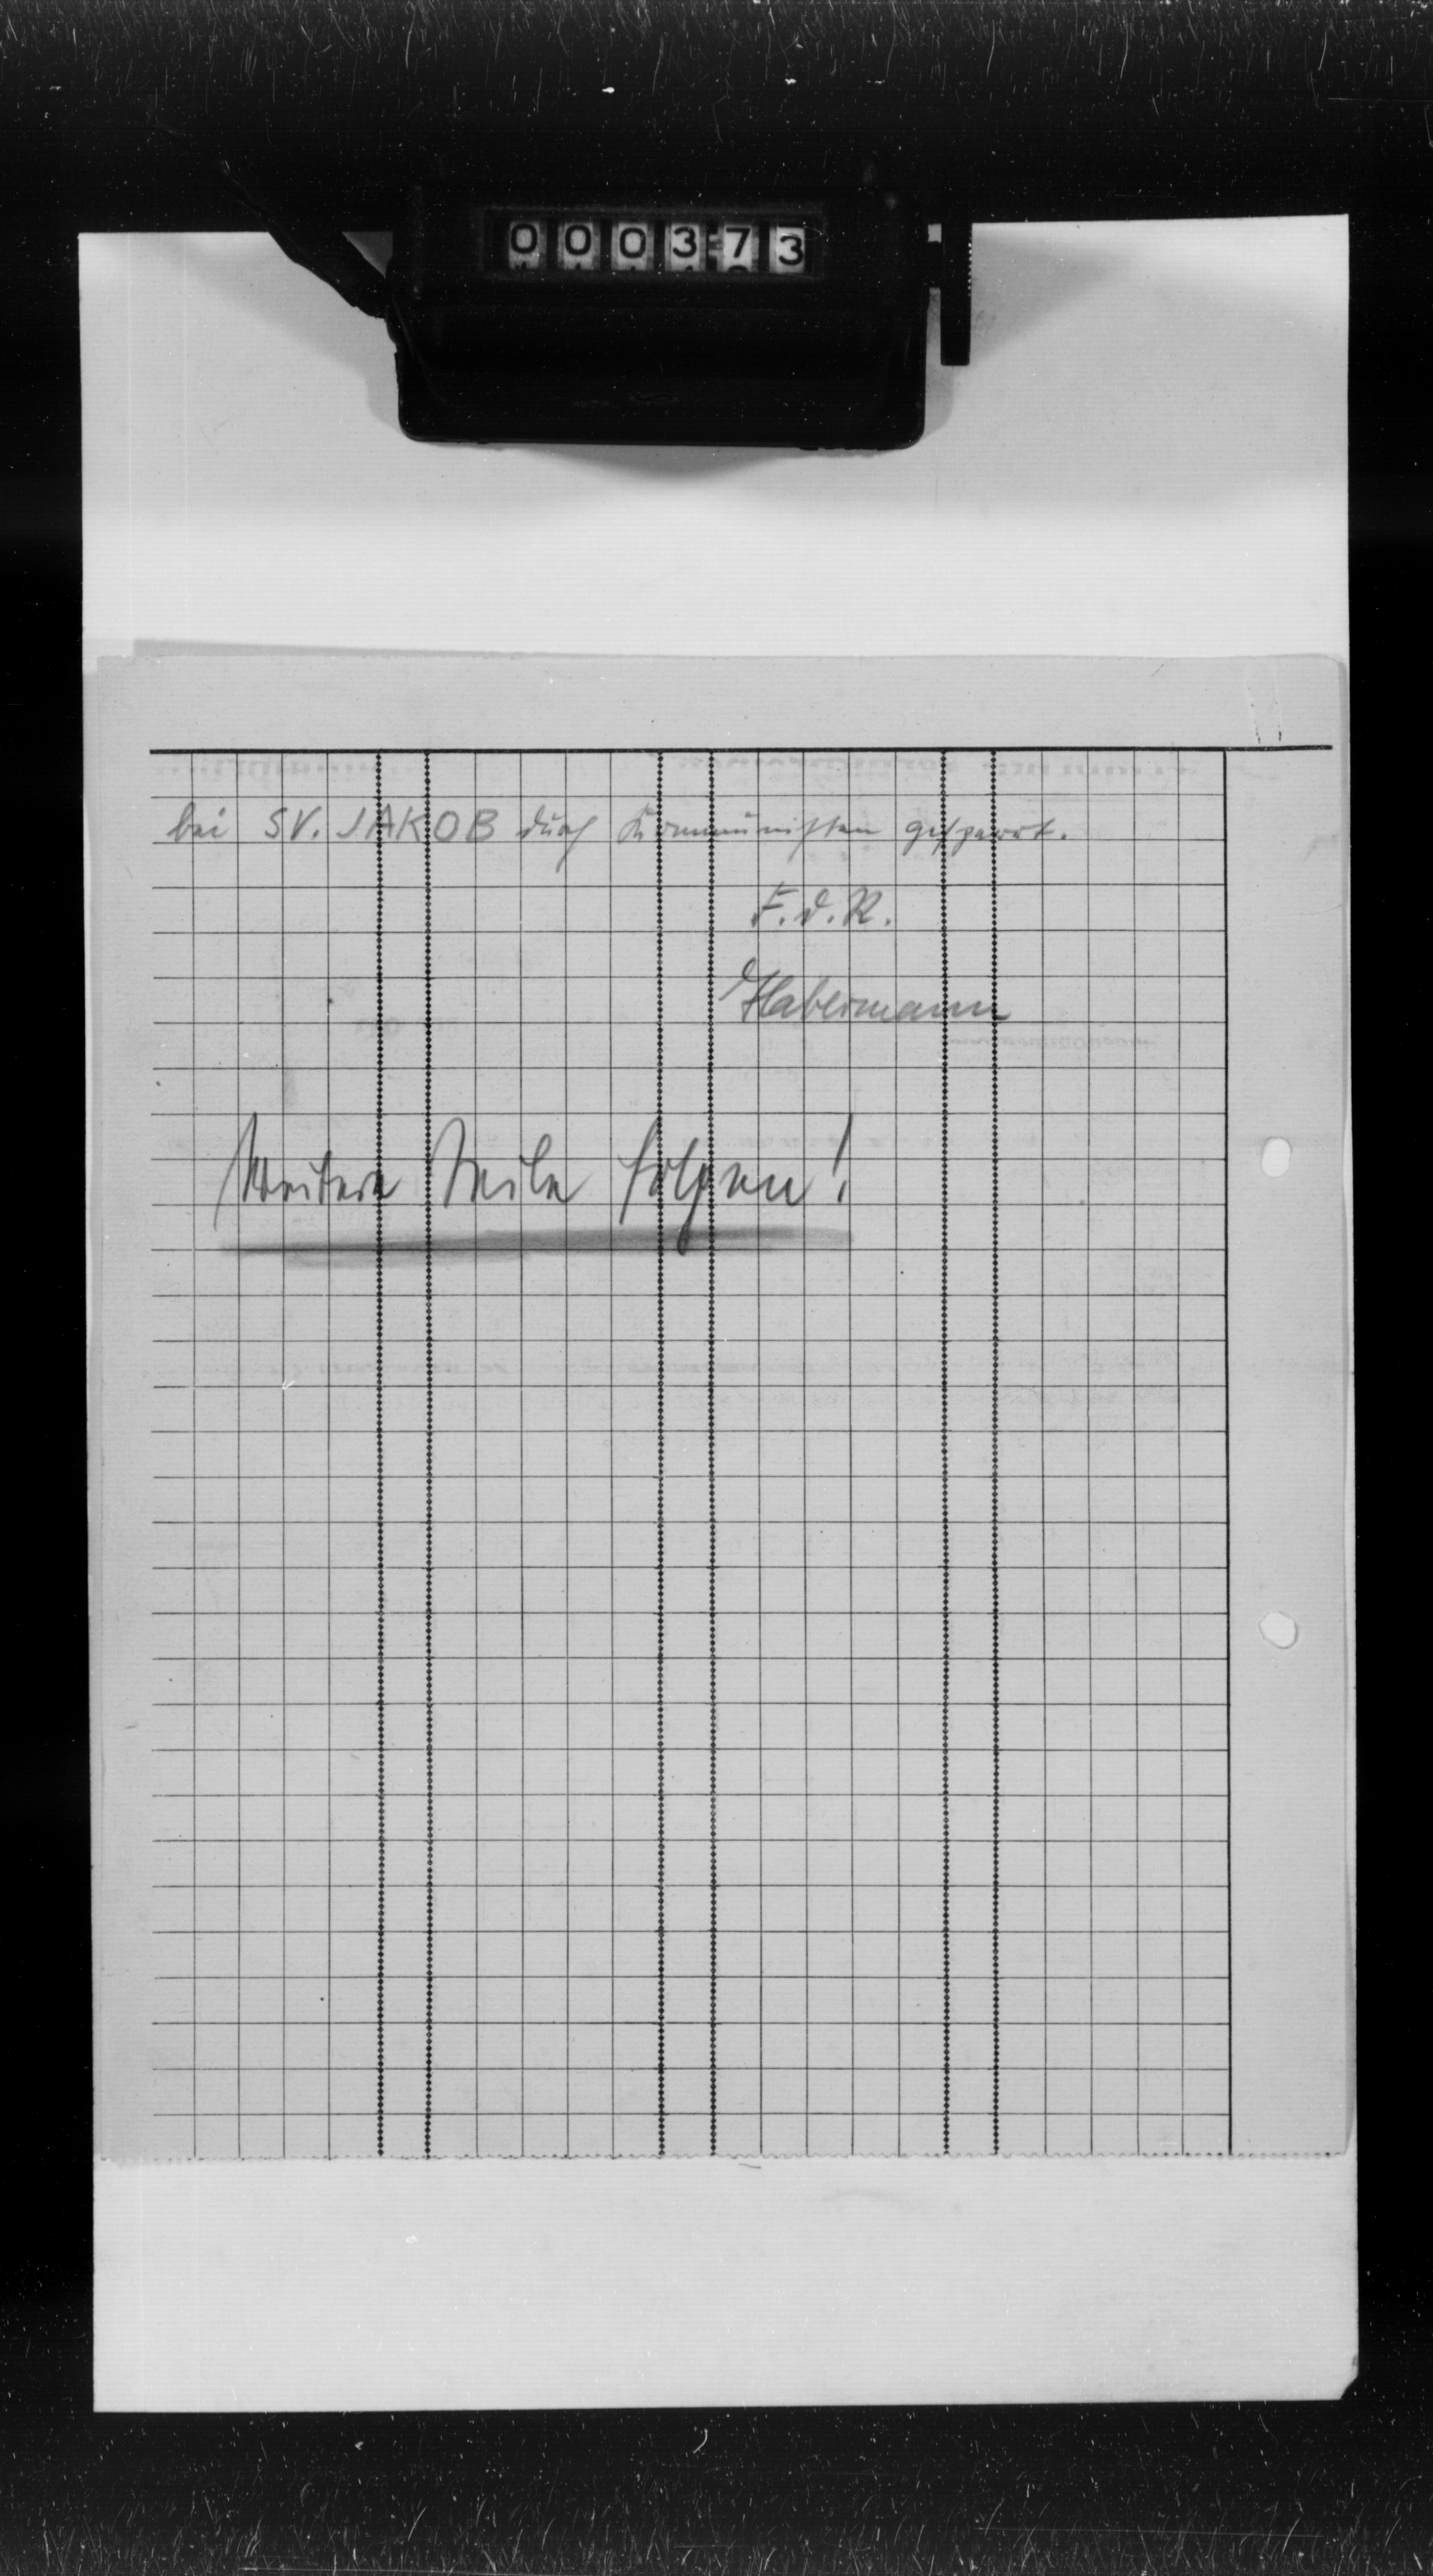 000373
bei SV. JAKOB durch Kommunisten gesperrt.
F.d.R.
Habermann
Weitere Teile folgen!